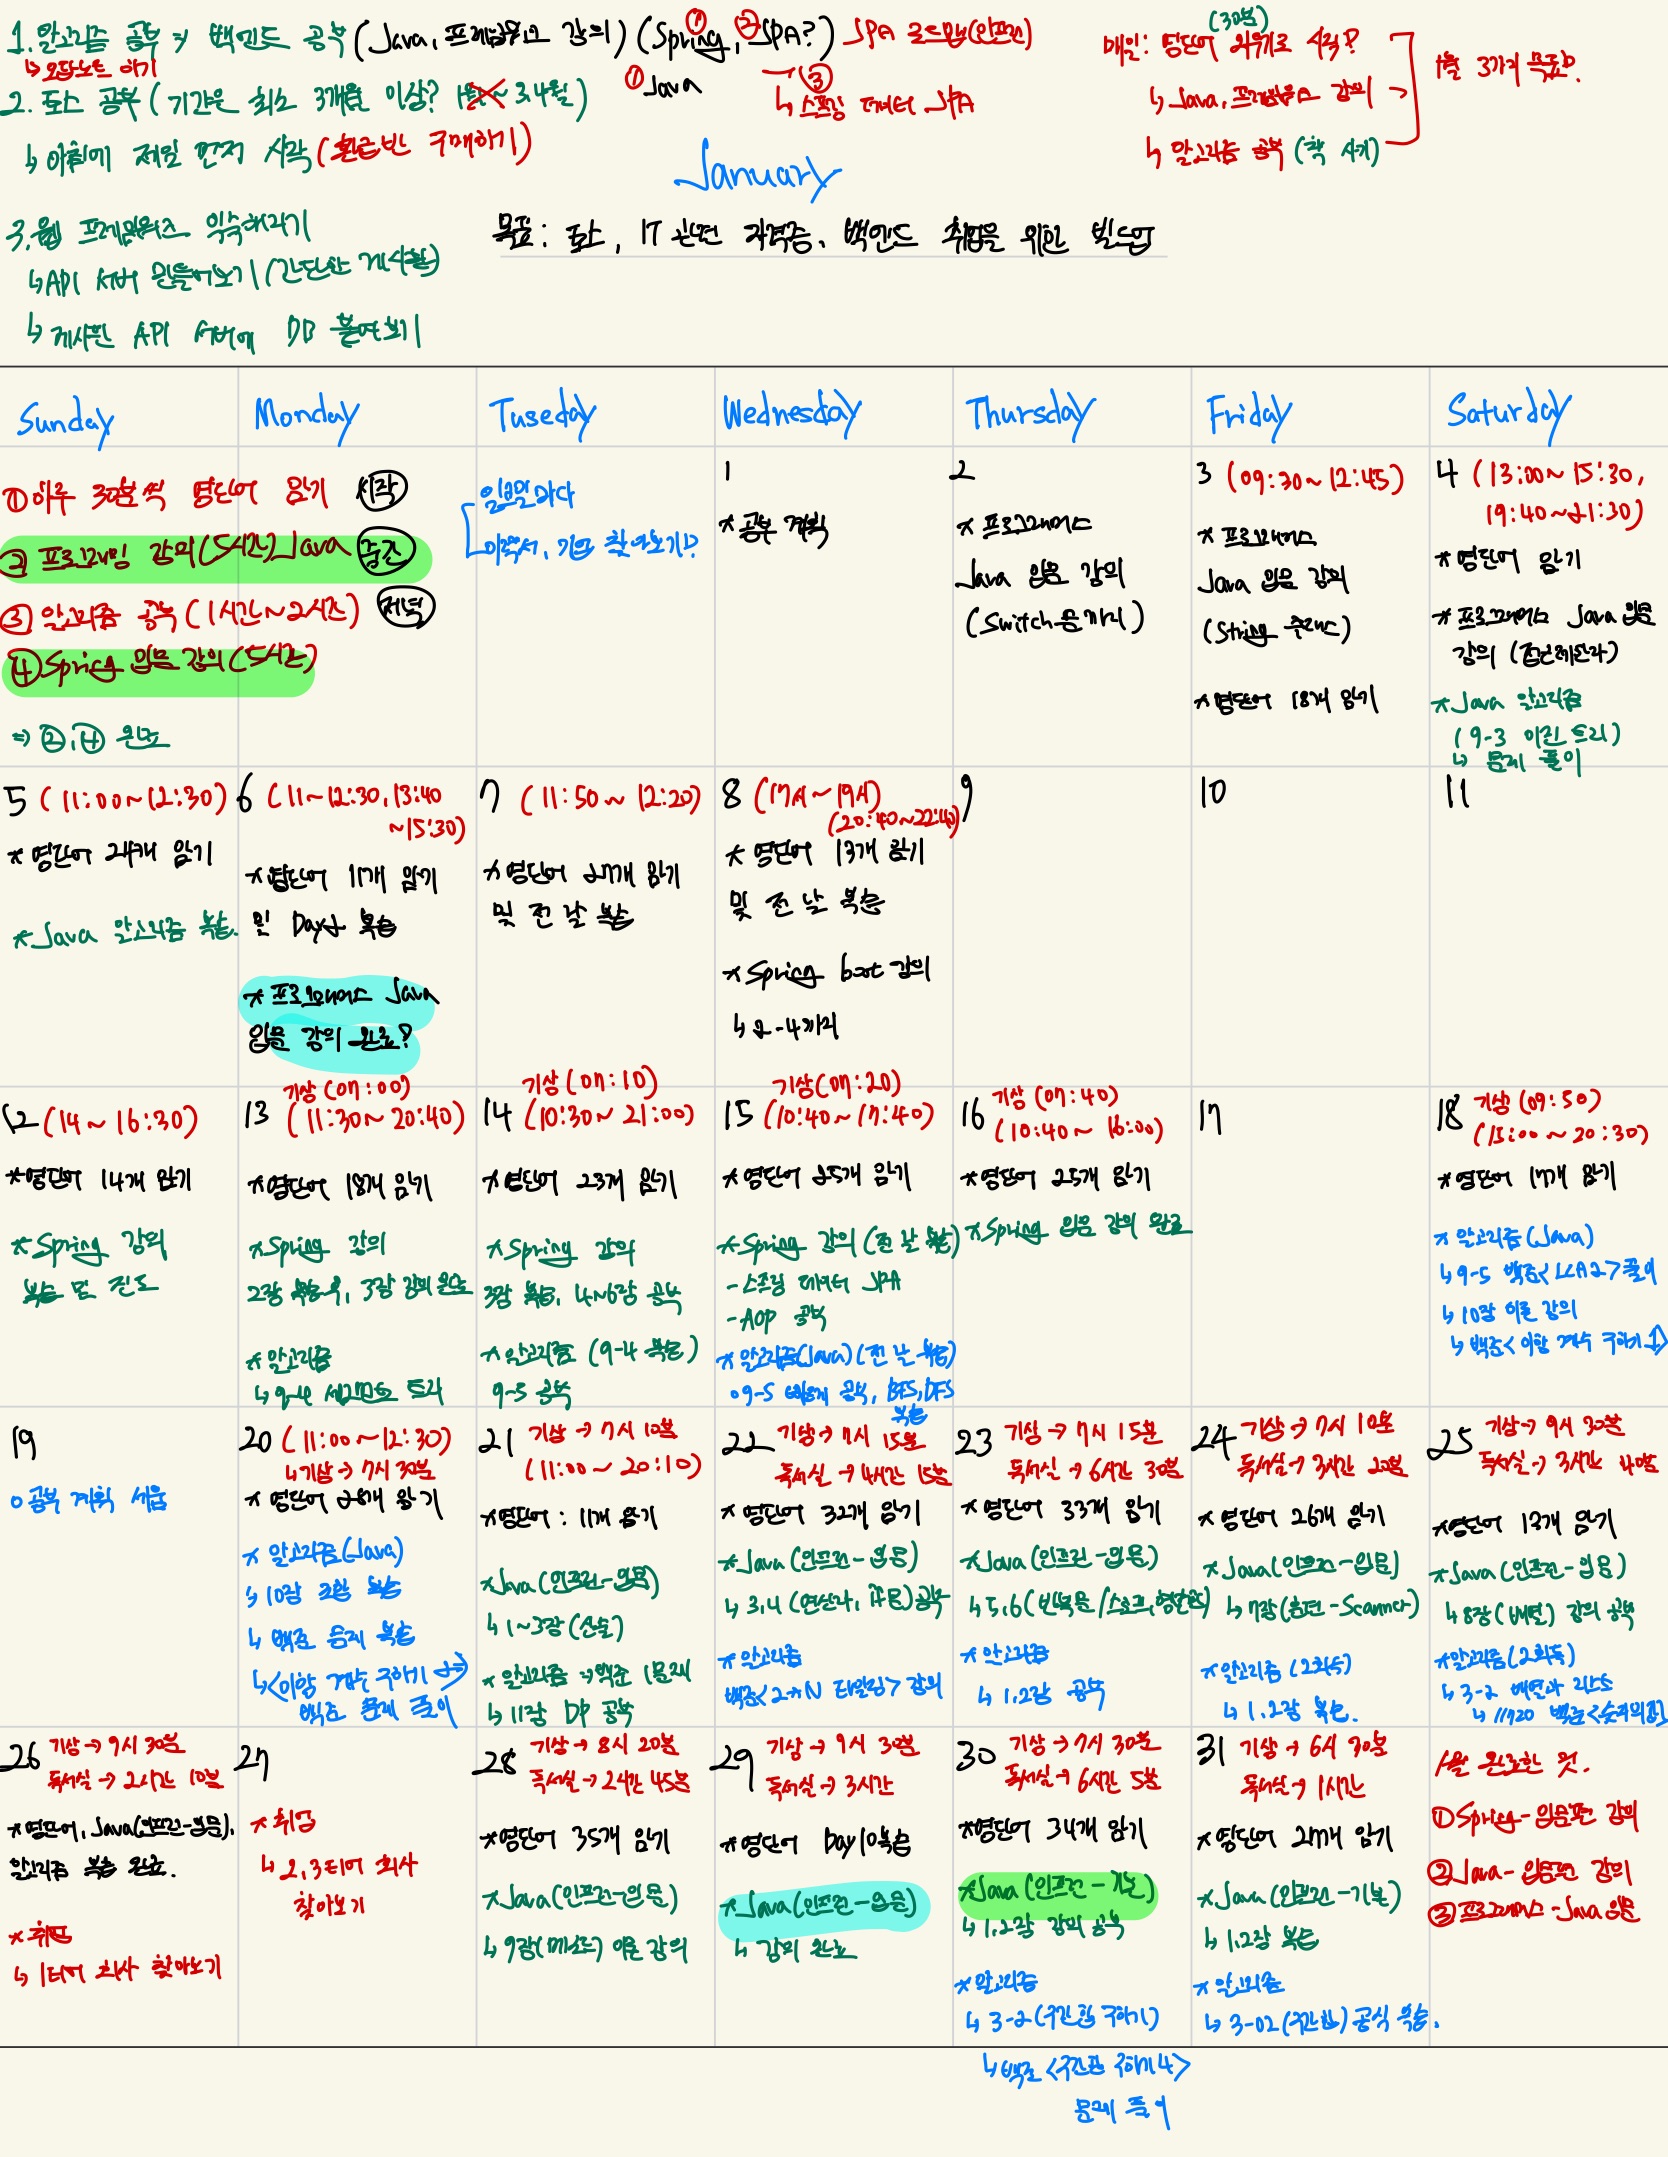 1. 알고리즘 공부 → 백엔드 공부 (Java, 프로그래머스 강의) (Spring, JPA?) JPA 로드맵(인프런)
① ②
↳ 오답노트 하기
① Java
③
↳ 스프링 데이터 JPA
2. 토스 공부 (기간은 최소 3개월 이상? ~ 3,4월)
↳ 아침에 제일 먼저 시작 (환급반 구매하기)
3. 웹 프레임워크 익숙해지기
↳ API 서버 만들어보기 (간단한 게시판)
↳ 게시판 API 서버에 DB 붙여보기
(30분)
매일: 영단어 외우기로 시작?
↳ Java, 프로그래머스 강의
↳ 알고리즘 공부 (책 시작)
1월 3가지 목표?
January
목표: 토스, IT 관련 자격증, 백엔드 취업을 위한 빌드업
Sunday
Monday
Tuseday
Wednesday
Thursday
Friday
Saturday
① 하루 30분씩 영단어 암기 시작
② 프로그래밍 강의(5시간) Java 중간
③ 알고리즘 공부 (1시간~2시간) 저녁
④ Spring 입문 강의 (5시간)
⇒ ②,④ 완료
일요일마다
이력서, 기업 찾아보기?
1
* 공부 계획
2
* 프로그래머스
Java 입문 강의
(Switch문까지)
3 (09:30~12:45)
* 프로그래머스
Java 입문 강의
(String 클래스)
* 영단어 18개 암기
4 (13:00~15:30,
19:40~21:30)
* 영단어 암기
* 프로그래머스 Java 입문
강의 (접근제한자)
* Java 알고리즘
(9-3 이진 트리)
↳ 문제 풀이
5 (11:00~12:30)
* 영단어 24개 암기
* Java 알고리즘 복습.
6 (11~12:30, 13:40
~15:30)
* 영단어 11개 암기
및 Day2 복습
* 프로그래머스 Java
입문 강의 완료?
7 (11:50~12:20)
* 영단어 27개 암기
및 전 날 복습
8 (17시~19시)
(20:40~22:40)
* 영단어 13개 암기
및 전 날 복습
* Spring boot 강의
↳ 2-4까지
9
10
11
12 (14~16:30)
* 영단어 14개 암기
* Spring 강의
복습 및 진도
기상 (07:00)
13 (11:30~20:40)
* 영단어 18개 암기
* Spring 강의
2장 복습 후, 3장 강의 완료
* 알고리즘
↳ 9-4 세그먼트 트리
기상 (07:10)
14 (10:30~21:00)
* 영단어 23개 암기
* Spring 강의
3장 복습, 4~6장 공부
* 알고리즘 (9-4 복습)
9-5 공부
기상(07:20)
15 (10:40~17:40)
* 영단어 25개 암기
* Spring 강의 (전 날 복습)
- 스프링 데이터 JPA
- AOP 공부
* 알고리즘(Java) (전 날 복습)
○ 9-5 공부, BFS, DFS
복습
16 기상 (07:40)
(10:40~16:00)
* 영단어 25개 암기
* Spring 입문 강의 완료
17
18 기상 (09:50)
(15:00~20:30)
* 영단어 17개 암기
* 알고리즘(Java)
↳ 9-5 백준<LCA2>풀이
↳ 10장 이론 강의
↳ 백준<이항 계수 구하기1>
19
○ 공부 계획 세움
20 (11:00~12:30)
↳ 기상 → 7시 30분
* 영단어 28개 암기
* 알고리즘(Java)
↳ 10장 조합 복습
↳ 백준 문제 복습
↳ <이항 계수 구하기 2>
백준 문제 풀이
21 기상 → 7시 10분
(11:00~20:10)
* 영단어: 11개 암기
* Java(인프런-입문)
↳ 1~3장 (산술)
* 알고리즘 → 백준 1문제
↳ 11장 DP 공부
22 기상 → 7시 15분
독서실 → 4시간 15분
* 영단어 32개 암기
* Java(인프런-입문)
↳ 3,4 (연산자, 조건문) 공부
* 알고리즘
백준<2*N 타일링> 강의
23 기상 → 7시 15분
독서실 → 6시간 30분
* 영단어 33개 암기
* Java(인프런-입문)
↳ 5,6 (반복문/스코프,형변환)
* 알고리즘
↳ 1,2장 공부
24 기상 → 7시 10분
독서실 → 3시간 20분
* 영단어 26개 암기
* Java(인프런-입문)
↳ 7장(훈련-Scanner)
* 알고리즘 (2회독)
↳ 1,2장 복습.
25 기상 → 9시 30분
독서실 → 3시간 40분
* 영단어 13개 암기
* Java(인프런-입문)
↳ 8장(배열) 강의 공부
* 알고리즘(2회독)
↳ 3-2 배열과 리스트
↳ 11720 백준<숫자의합>
26 기상 → 9시 30분
독서실 → 2시간 10분
* 영단어, Java(인프런-입문),
알고리즘 복습 완료.
* 취업
↳ 1티어 회사 찾아보기
27
* 취업
↳ 2,3티어 회사
찾아보기
28 기상 → 8시 20분
독서실 → 2시간 45분
* 영단어 35개 암기
* Java(인프런-입문)
↳ 9장(메서드) 이론 강의
29 기상 → 9시 30분
독서실 → 3시간
* 영단어 Day10복습
* Java(인프런-입문)
↳ 강의 완료
30 기상 → 7시 30분
독서실 → 6시간 5분
* 영단어 34개 암기
* Java(인프런-기본)
↳ 1,2장 강의 공부
* 알고리즘
↳ 3-2(구간합 구하기)
↳ 백준 <구간합 구하기4>
문제 풀이
31 기상 → 6시 30분
독서실 → 1시간
* 영단어 27개 암기
* Java(인프런-기본)
↳ 1,2장 복습
* 알고리즘
↳ 3-02(구간합) 공식 복습.
1월 완료한 것.
① Spring-입문편 강의
② Java-입문편 강의
③ 프로그래머스-Java입문